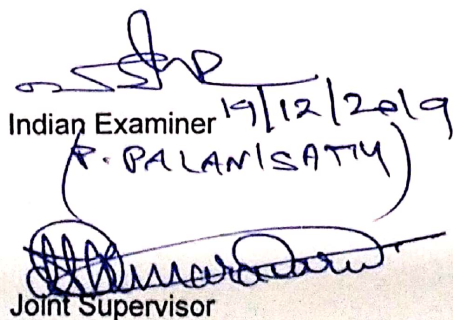 Indian Examiner 19/12/2019
(P. PALANISAMY)
Joint Supervisor